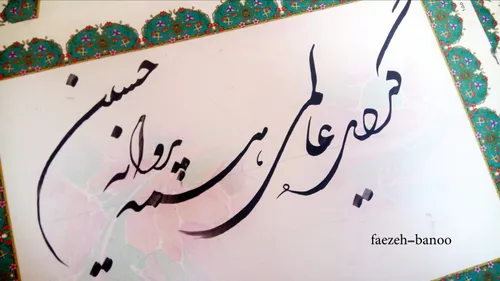 کردی عالمی همه پروانه حسین
faezeh-banoo